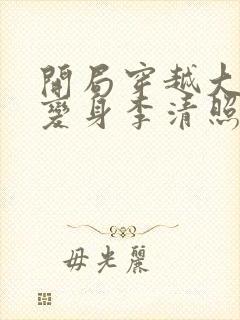 開局穿越大
變身李清照
毋光麗